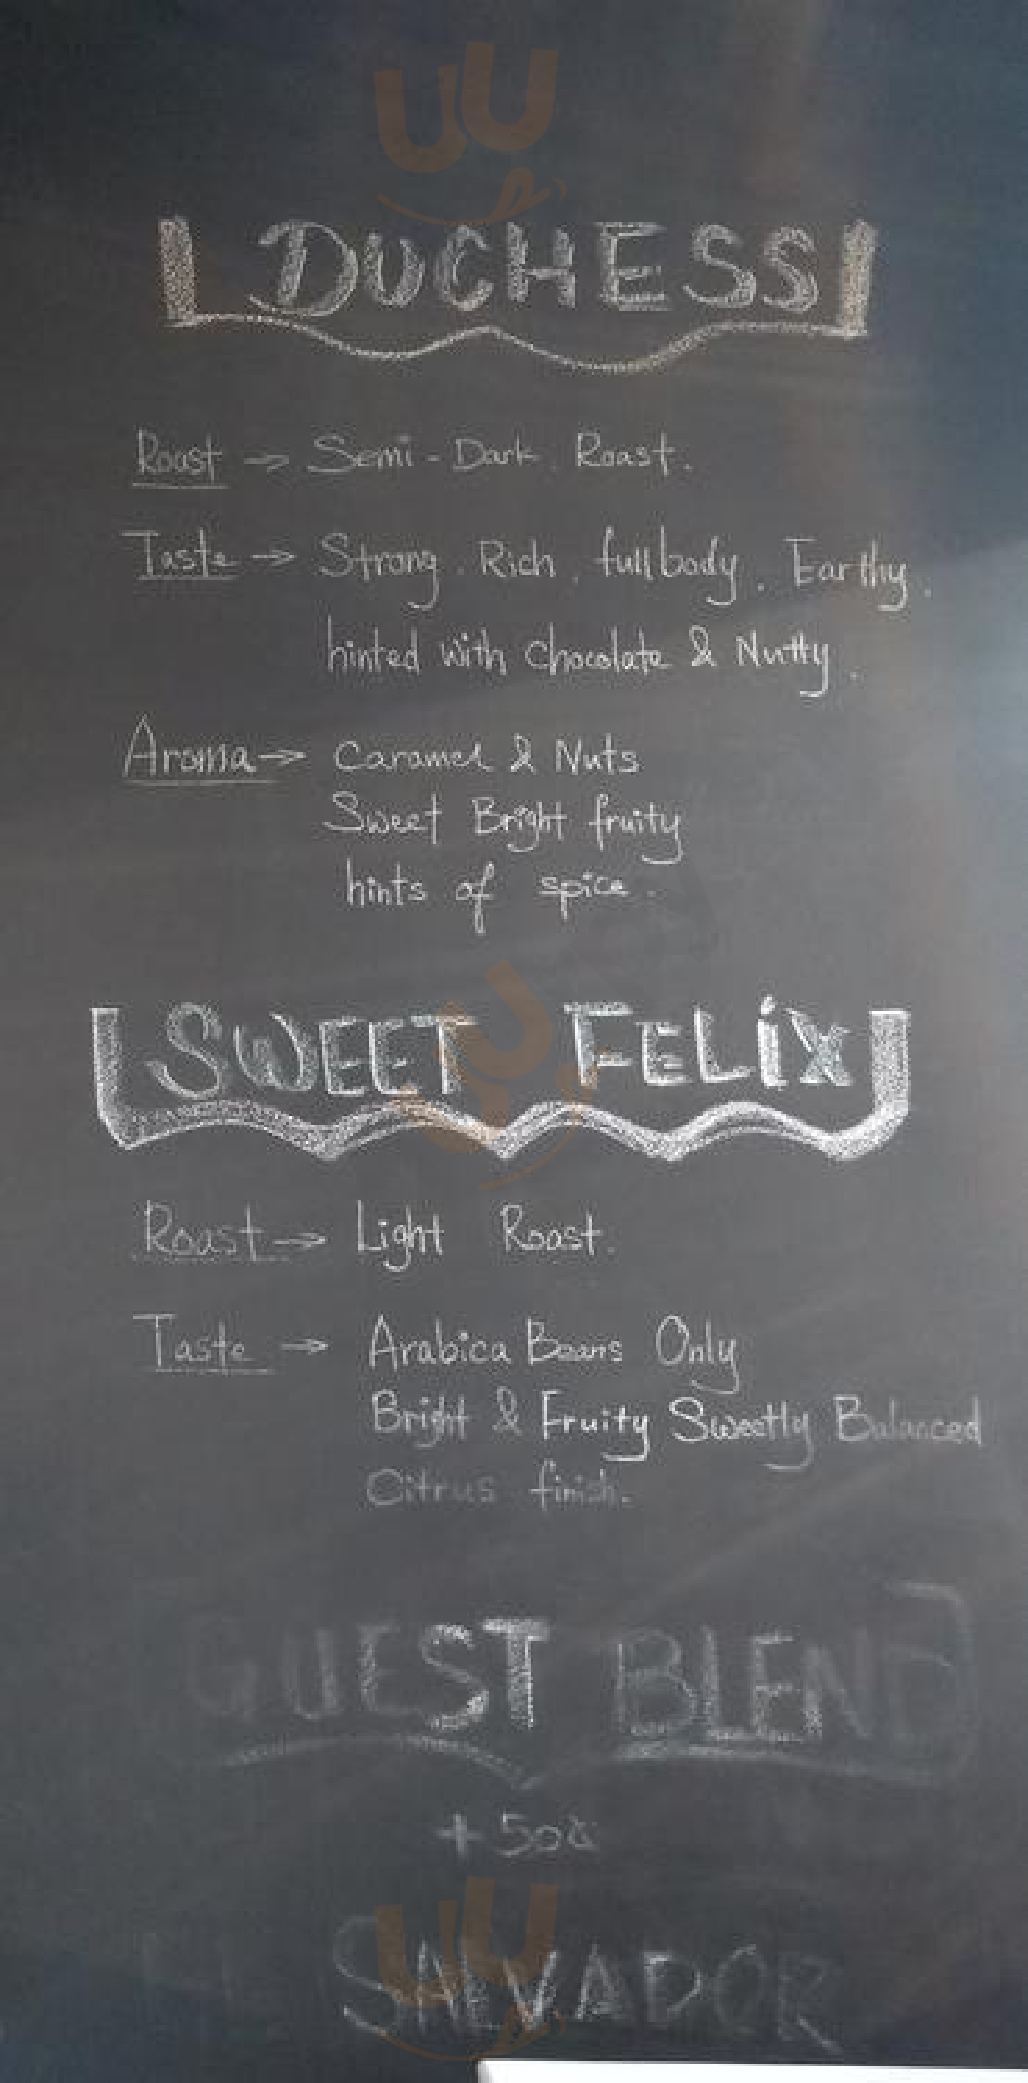 DUCHESS
Roast → Semi-Dark Roast.
Taste → Strong. Rich. full body. Earthy.
hinted with Chocolate & Nutty.
Aroma → Caramel & Nuts
Sweet Bright fruity
hints of spice.
SWEET FELiX
Roast → Light Roast.
Taste → Arabica Beans Only
Bright & Fruity Sweetly Balanced
Citrus finish.
GUEST BLEND
+50¢
SALVADOR